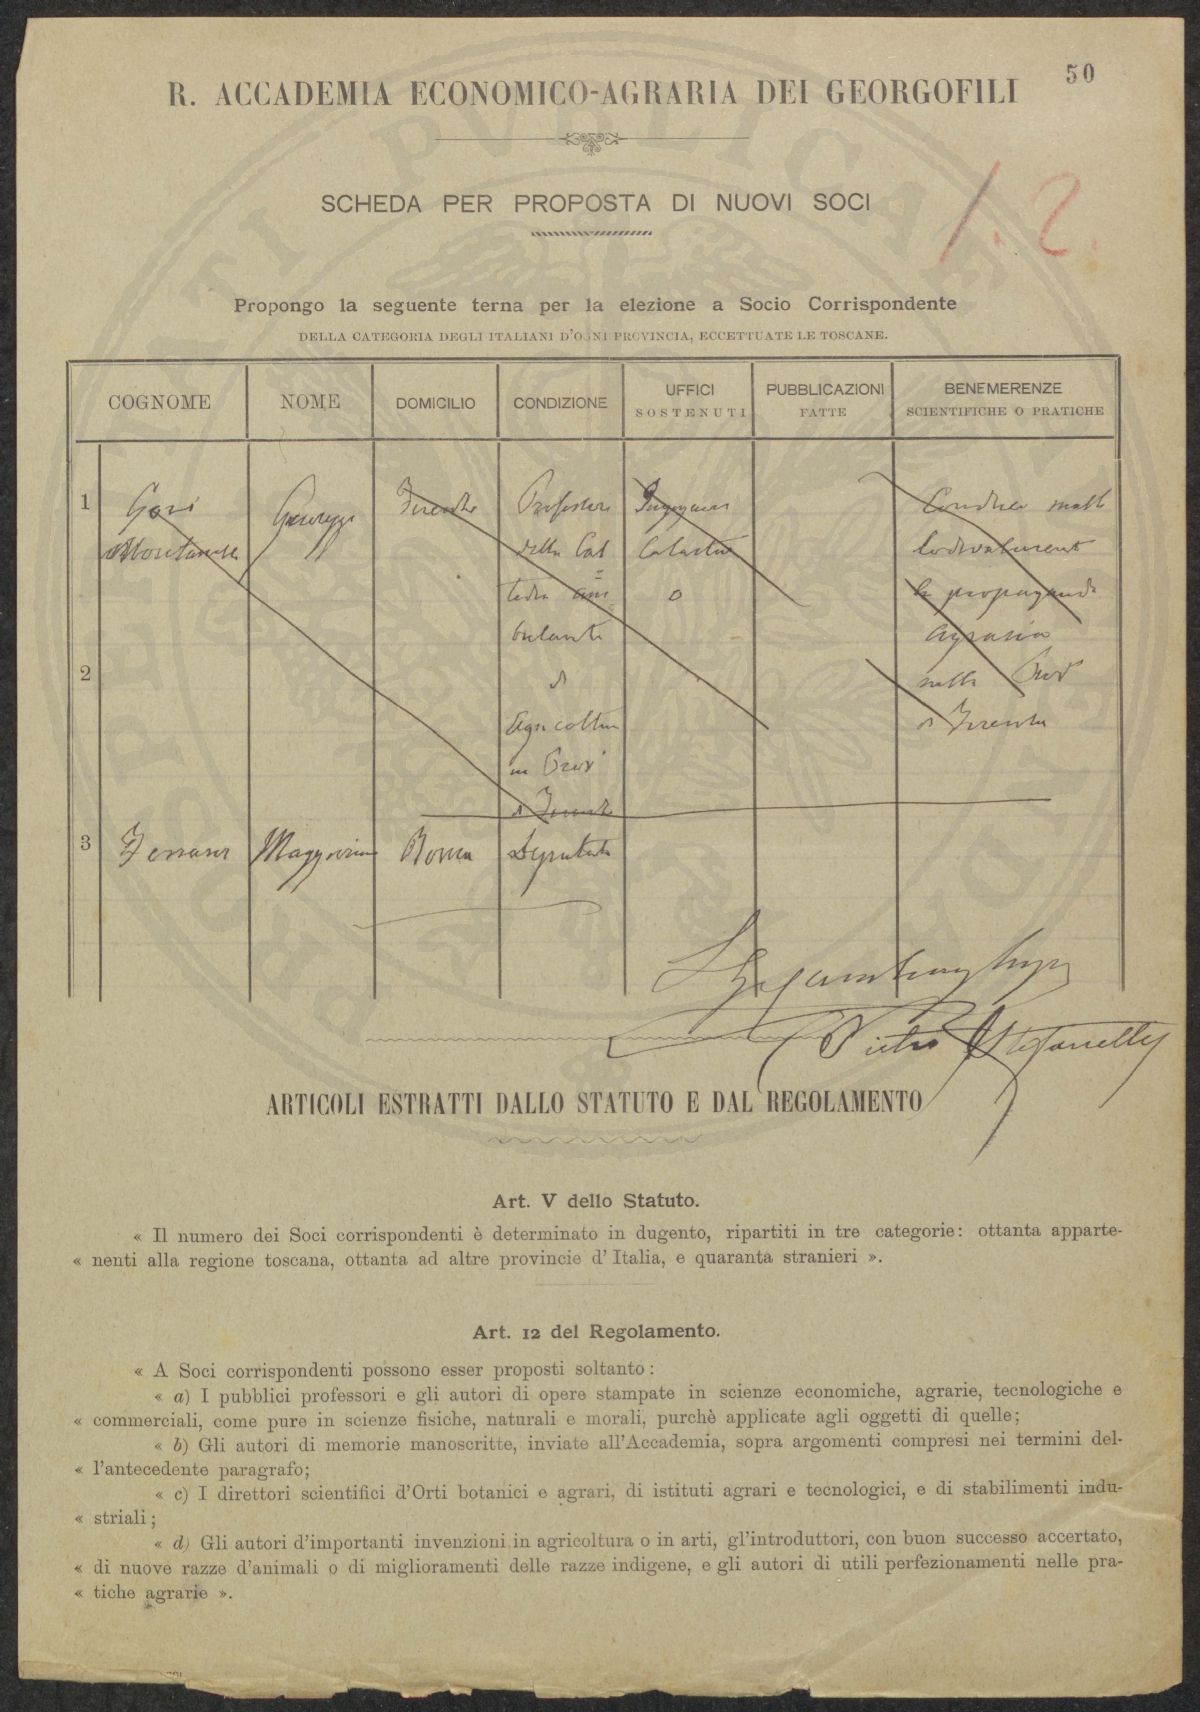 50
R. ACCADEMIA ECONOMICO-AGRARIA DEI GEORGOFILI
1. 2.
SCHEDA PER PROPOSTA DI NUOVI SOCI
Propongo la seguente terna per la elezione a Socio Corrispondente
DELLA CATEGORIA DEGLI ITALIANI D'OGNI PROVINCIA, ECCETTUATE LE TOSCANE.
COGNOME NOME DOMICILIO CONDIZIONE UFFICI SOSTENUTI PUBBLICAZIONI FATTE BENEMERENZE SCIENTIFICHE O PRATICHE
1 Gori Giuseppe Firenze Professore Ingegnere Conduce molto
Montanelli della Cat Catasta lodevolmente
tedra am o la propaganda
bulante agraria
2 di nella Prov
Agricoltura di Firenze
in Prov
di Firenze
3 Ferraris Maggiorino Roma Deputato
Pietro Stefanelli
ARTICOLI ESTRATTI DALLO STATUTO E DAL REGOLAMENTO
Art. V dello Statuto.
« Il numero dei Soci corrispondenti è determinato in dugento, ripartiti in tre categorie: ottanta apparte-
« nenti alla regione toscana, ottanta ad altre provincie d' Italia, e quaranta stranieri ».
Art. 12 del Regolamento.
« A Soci corrispondenti possono esser proposti soltanto:
« a) I pubblici professori e gli autori di opere stampate in scienze economiche, agrarie, tecnologiche e
« commerciali, come pure in scienze fisiche, naturali e morali, purchè applicate agli oggetti di quelle;
« b) Gli autori di memorie manoscritte, inviate all'Accademia, sopra argomenti compresi nei termini del-
« l'antecedente paragrafo;
« c) I direttori scientifici d'Orti botanici e agrari, di istituti agrari e tecnologici, e di stabilimenti indu-
« striali;
« d) Gli autori d'importanti invenzioni in agricoltura o in arti, gl'introduttori, con buon successo accertato,
« di nuove razze d'animali o di miglioramenti delle razze indigene, e gli autori di utili perfezionamenti nelle pra-
« tiche agrarie ».